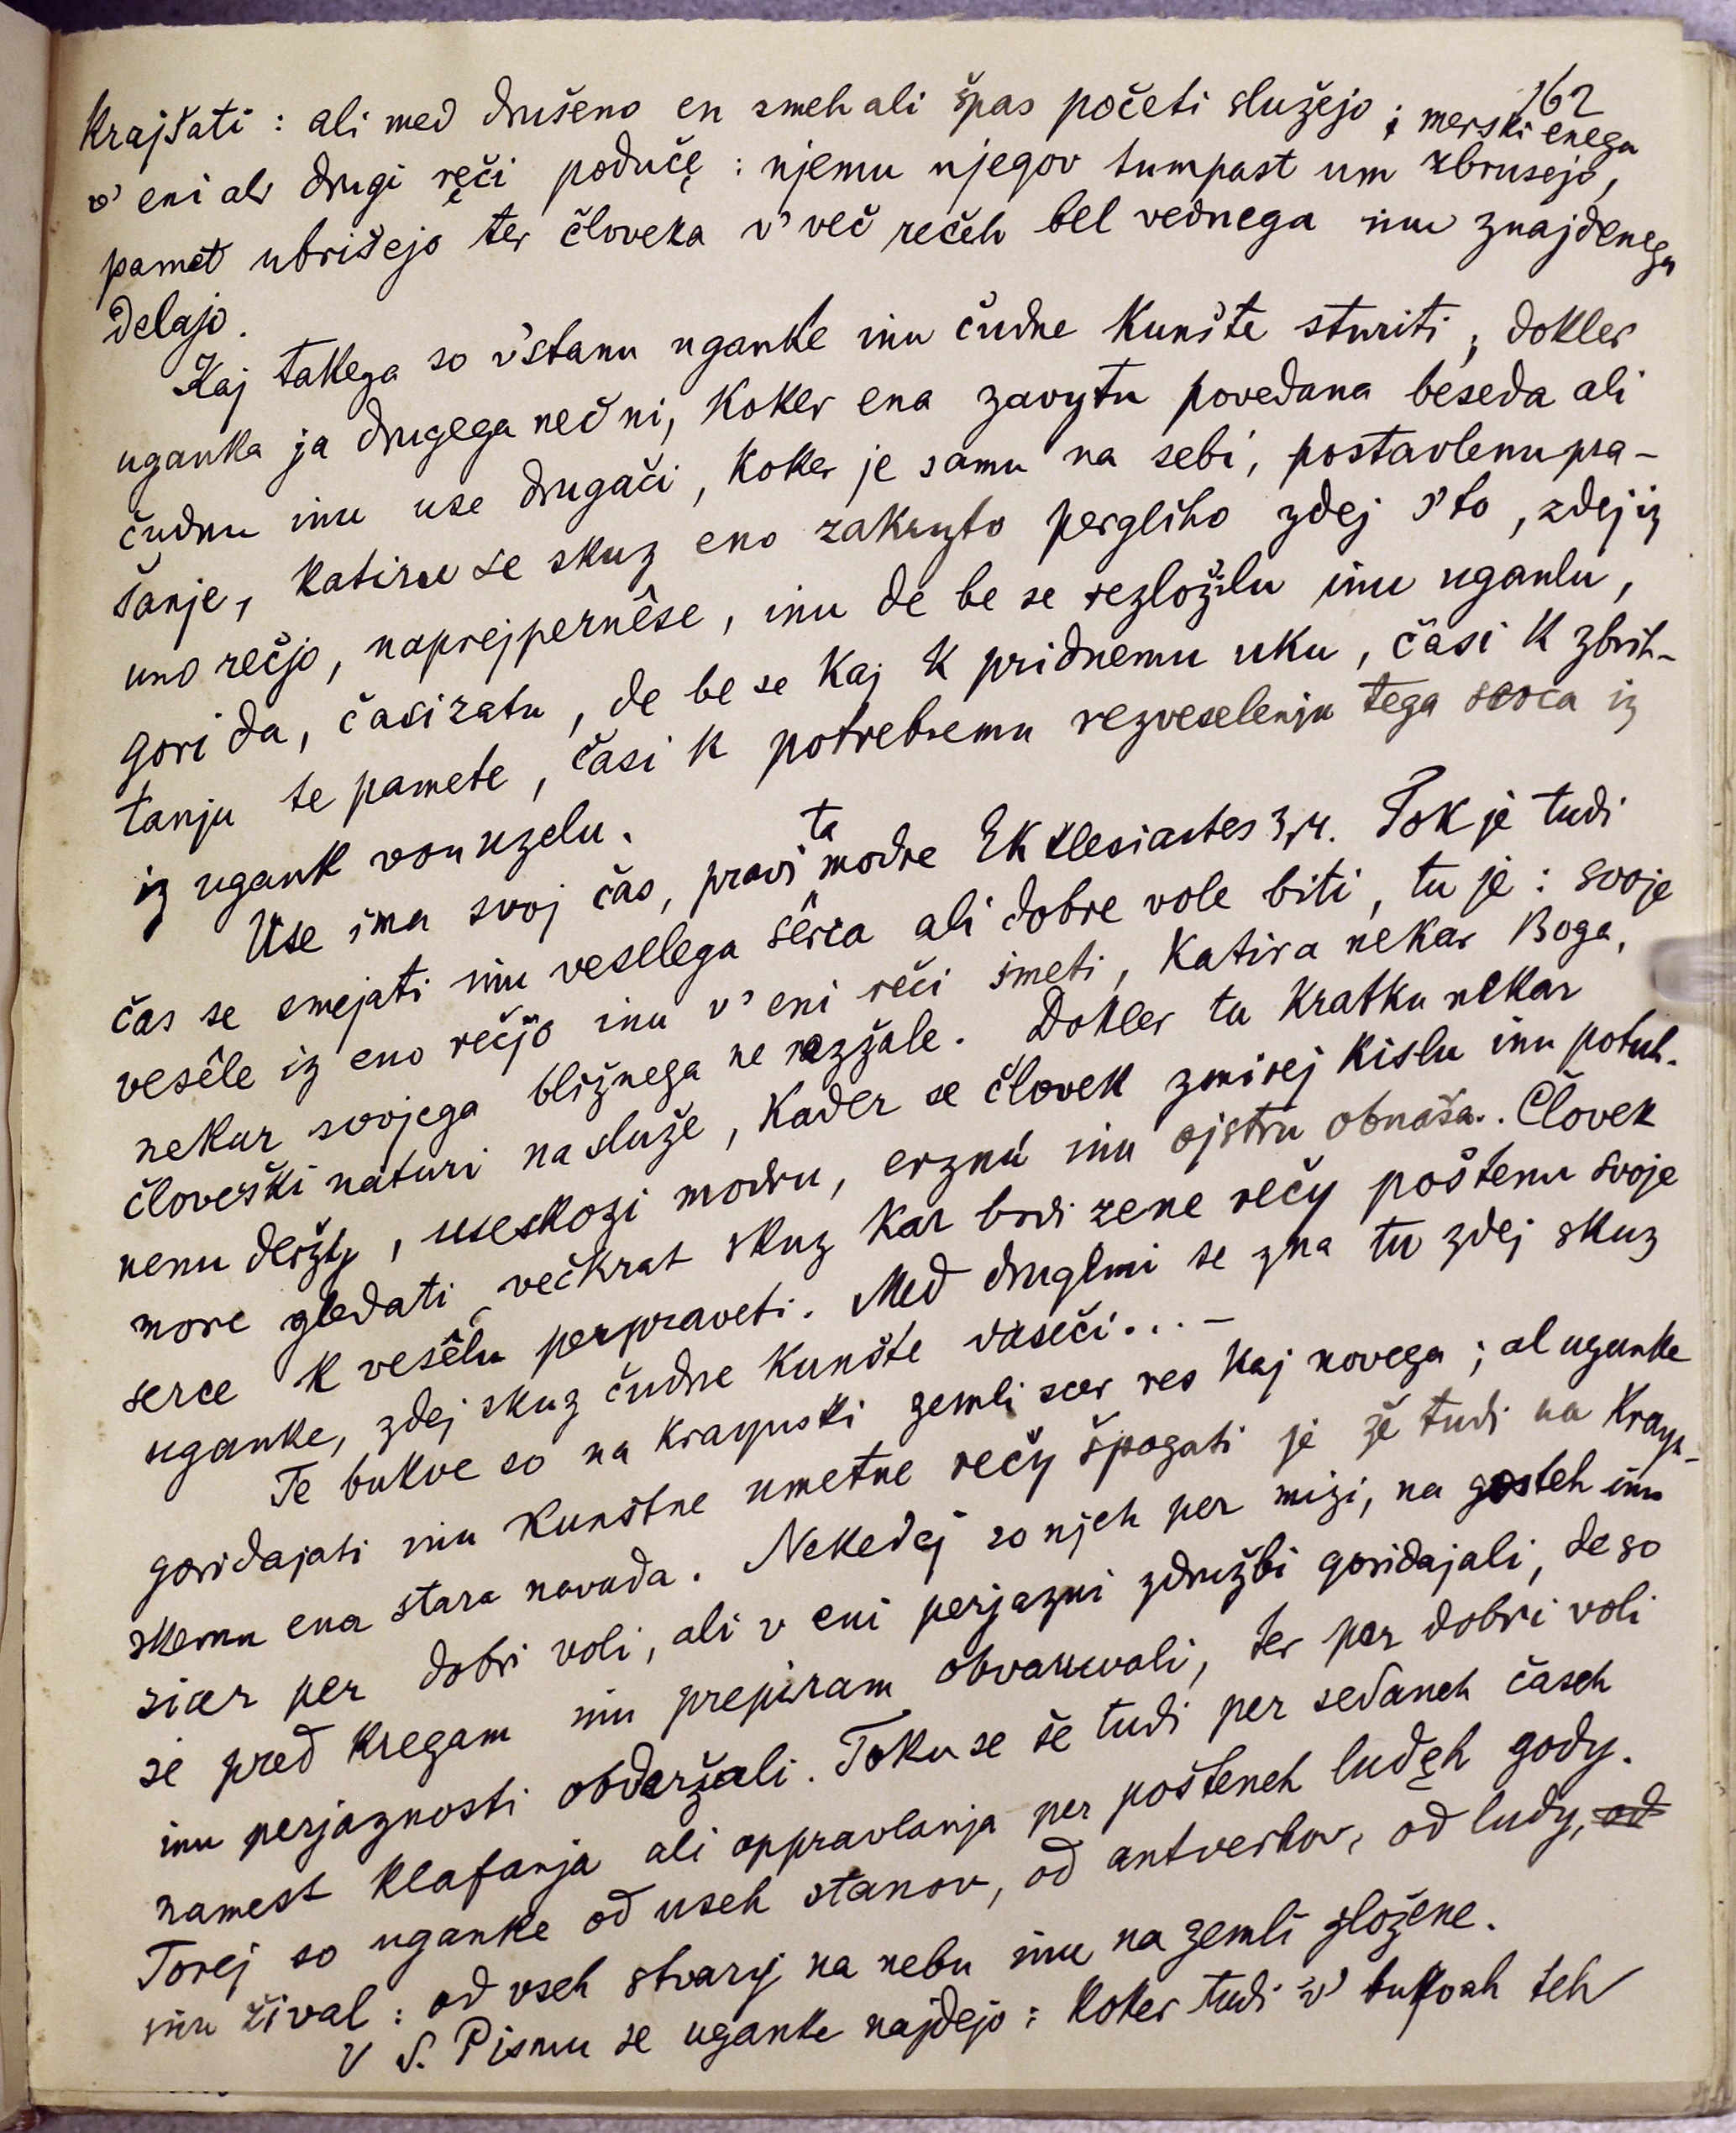 162
krajšati : ali med drušeno en smeh ali špas početi služejo ; merski enega
v' eni ali drugi ręči podučę : njemu njegov tumpast um zbrusejo,
pamet ubrišejo ter človeka v' več rečeh bel vednega inu znajdenega
delajo.
Kaj takega so v'stanu uganke inu čudne kunšte sturiti ; dokler
uganka ja drugega neč ni, koker ena zavytu povedana beseda ali
čudnu inu use drugači, koker je samu na sebi, postavlenu pra-
šanje, katiru se skuz eno zakryto pergliho zdej s'to, zdej iz
uno rečjo, naprejpernêse, inu de be se rezložilu inu uganlu,
gori da, časi zatu, de be se kaj k pridnemu uku, časi k zbrih-
tanju te pamete, časi k potrebnemu rezveselenju tega serca iz
iz ugank von uzelu.
Use ima svoj čas, pravi ta modre Ekklesiastes 3,4. Tok je tudi
čas se smejati inu vesellega sêrca ali dobre vole biti, tu je : svoje
vesêle iz eno rečjo inu v' eni reči imeti, katira nekar Boga,
nekar svojega bližnega ne razžale. Dokler tu kratku nekar
človeški naturi na služe, kader se človek zmirej kislu inu potuh-
nenu deržy, useskozi modru, erznú inu ojstru obnaša. Človek
more gledati večkrat skuz kar brdi zene rečy poštenu svoje
serce k vesêlu perpraveti. Med druglmi se zna tu zdej skuz
uganke, zdej skuz čudne kunšte daseči... –
Te bukve so na kraynski zemli scer res kaj novega ; al uganke
goridajati inu kunštne umetne rečy špogati je že tudi na Krayn-
skemu ena stara navada. Nekedej so njeh per mizi, na gosteh inu
sicer per dobri voli, ali v eni perjazni združbi goridajali, de so
se pred kregam inu prepiram obvaruvali, ter per dobri voli
inu perjaznosti obderžali. Toku se še tudi per sedaneh časeh
namest klafanja ali oppravlanja per pošteneh ludęh gody.
Torej so uganke od useh stanov, od antverhov, od ludy, od
inu žival : od vseh stvary na nebu inu na zemli zložene.
V S. Pismu se uganke najdejo : koker tudi v' bukvah teh